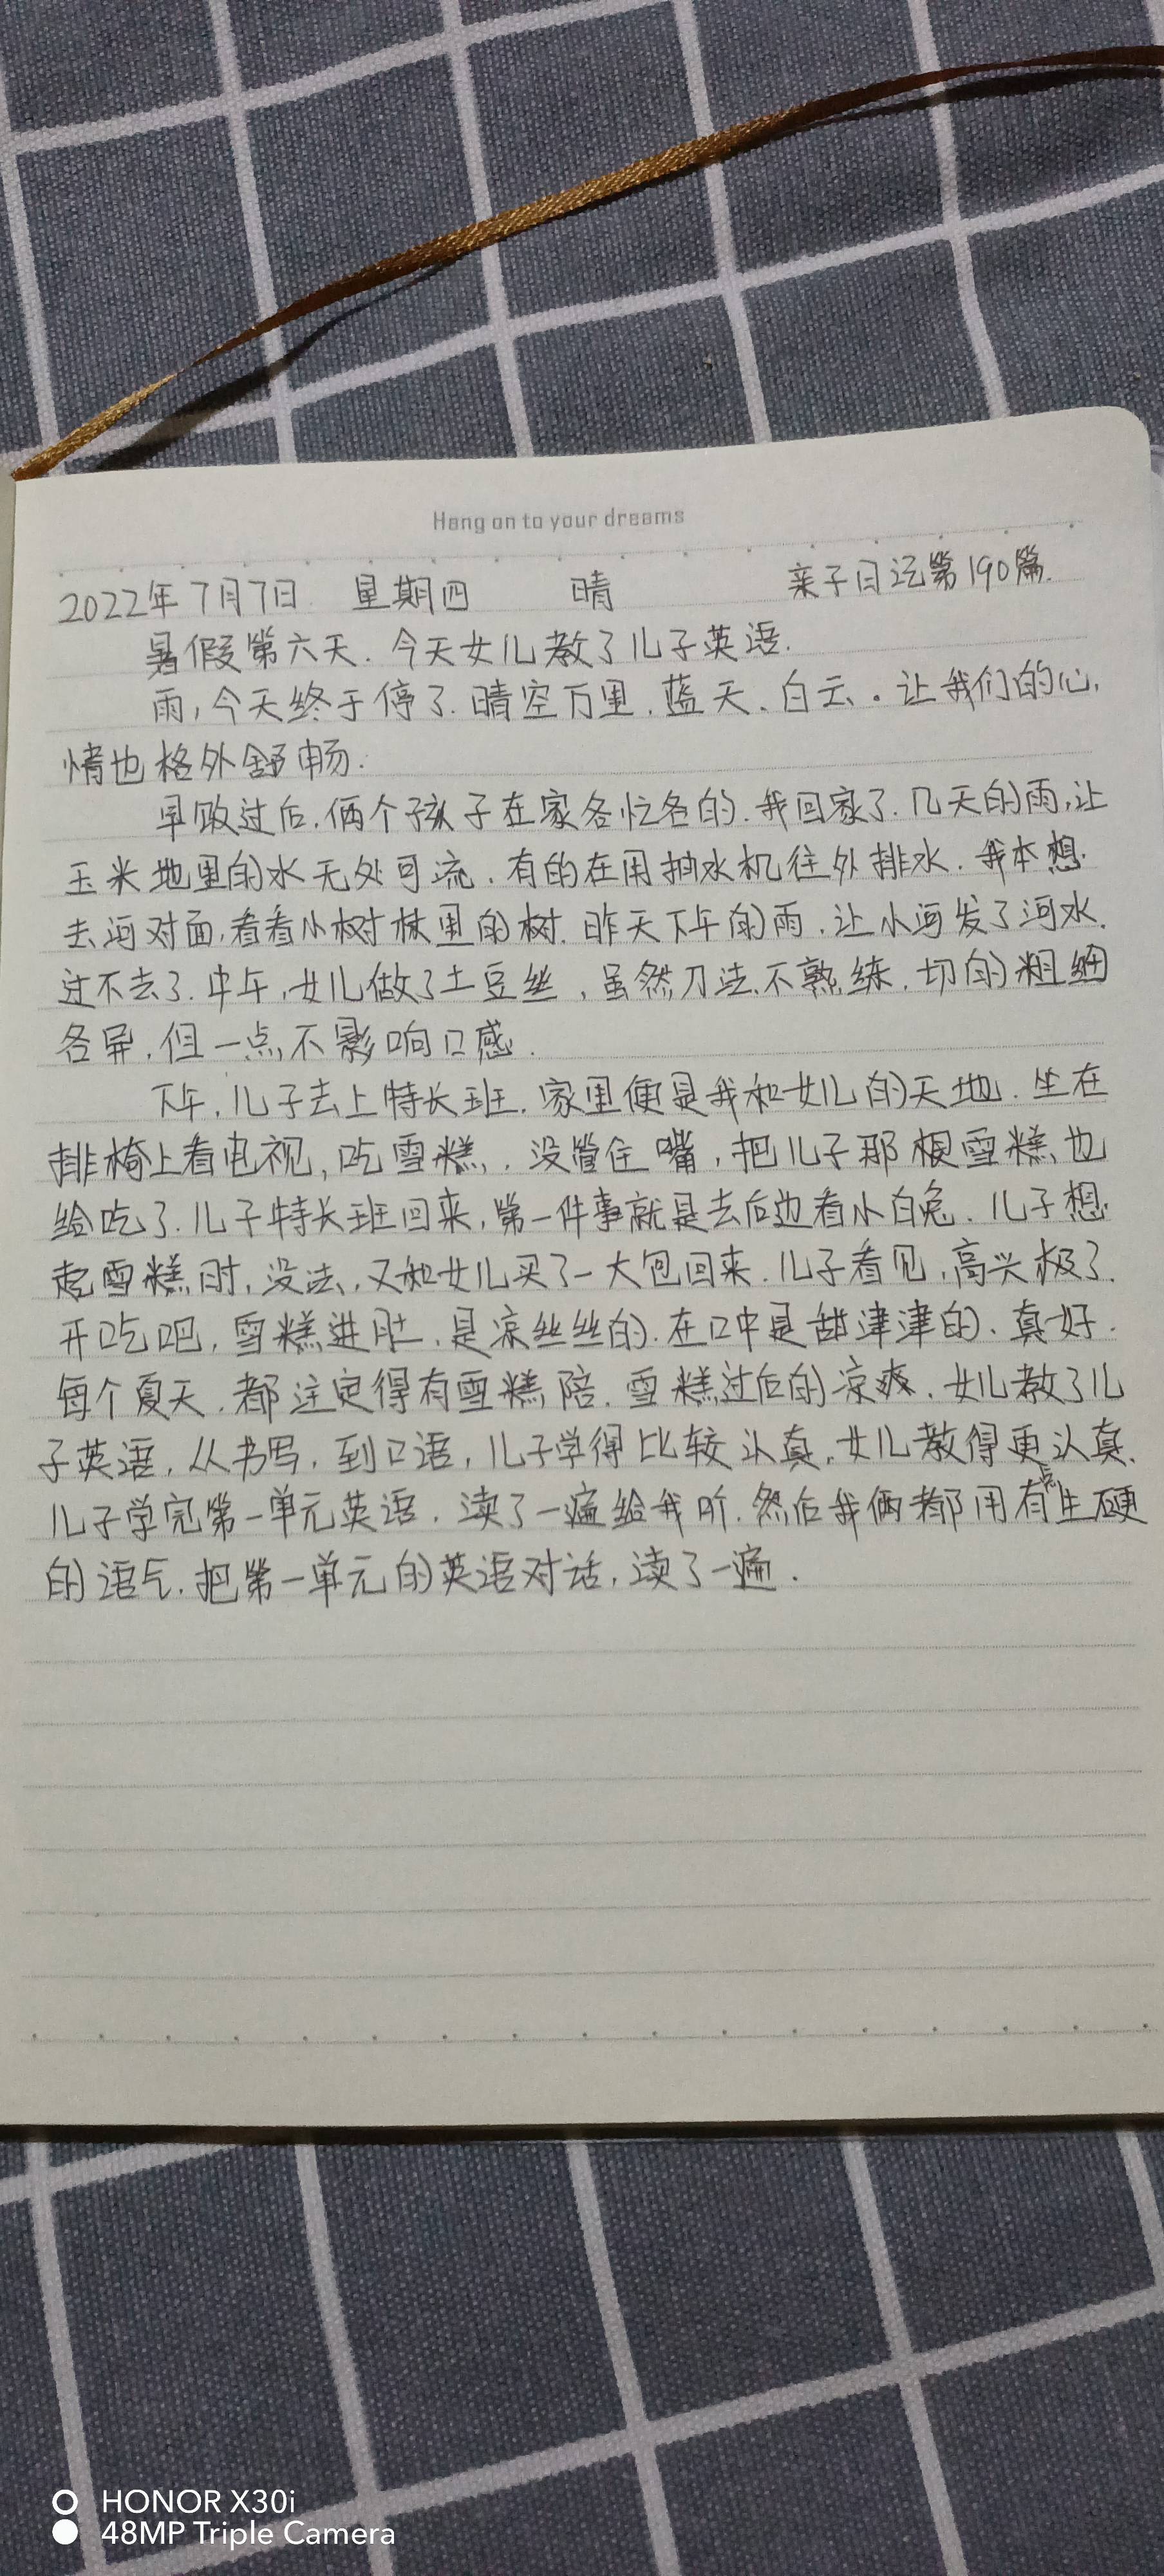 Hang on to your dreams
2022年7月7日 星期四 晴 亲子日记第190篇.
暑假第六天.今天女儿教了儿子英语.
雨,今天终于停了.晴空万里.蓝天、白云。让我们的心,
情也格外舒畅.
早饭过后.俩个孩子在家各忙各的.我回家了.几天的雨,让
玉米地里的水无处可流.有的在用抽水机往外排水.我本想
去河对面,看看小树林里的树.昨天下午的雨.让小河发了河水.
过不去了.中午,女儿做了土豆丝,虽然刀法不熟练.切的粗细
各异.但一点不影响口感.
下午,儿子去上特长班.家里便是我和女儿的天地.坐在
排椅上看电视,吃雪糕,.没管住嘴,把儿子那根雪糕也
给吃了.儿子特长班回来,第一件事就是去后边看小白兔.儿子想
起雪糕时,没法,又和女儿买了一大包回来.儿子看见,高兴极了.
开吃吧,雪糕进肚.是凉丝丝的.在口中是甜津津的、真好.
每个夏天.都注定得有雪糕陪.雪糕过后的凉爽.女儿教了儿
子英语,从书写.到口语,儿子学得比较认真,女儿教得更认真.
儿子学完第一单元英语.读了一遍给我听.然后我俩都用有点生硬
的语气.把第一单元的英语对话,读了一遍.
HONOR X30i
48MP Triple Camera